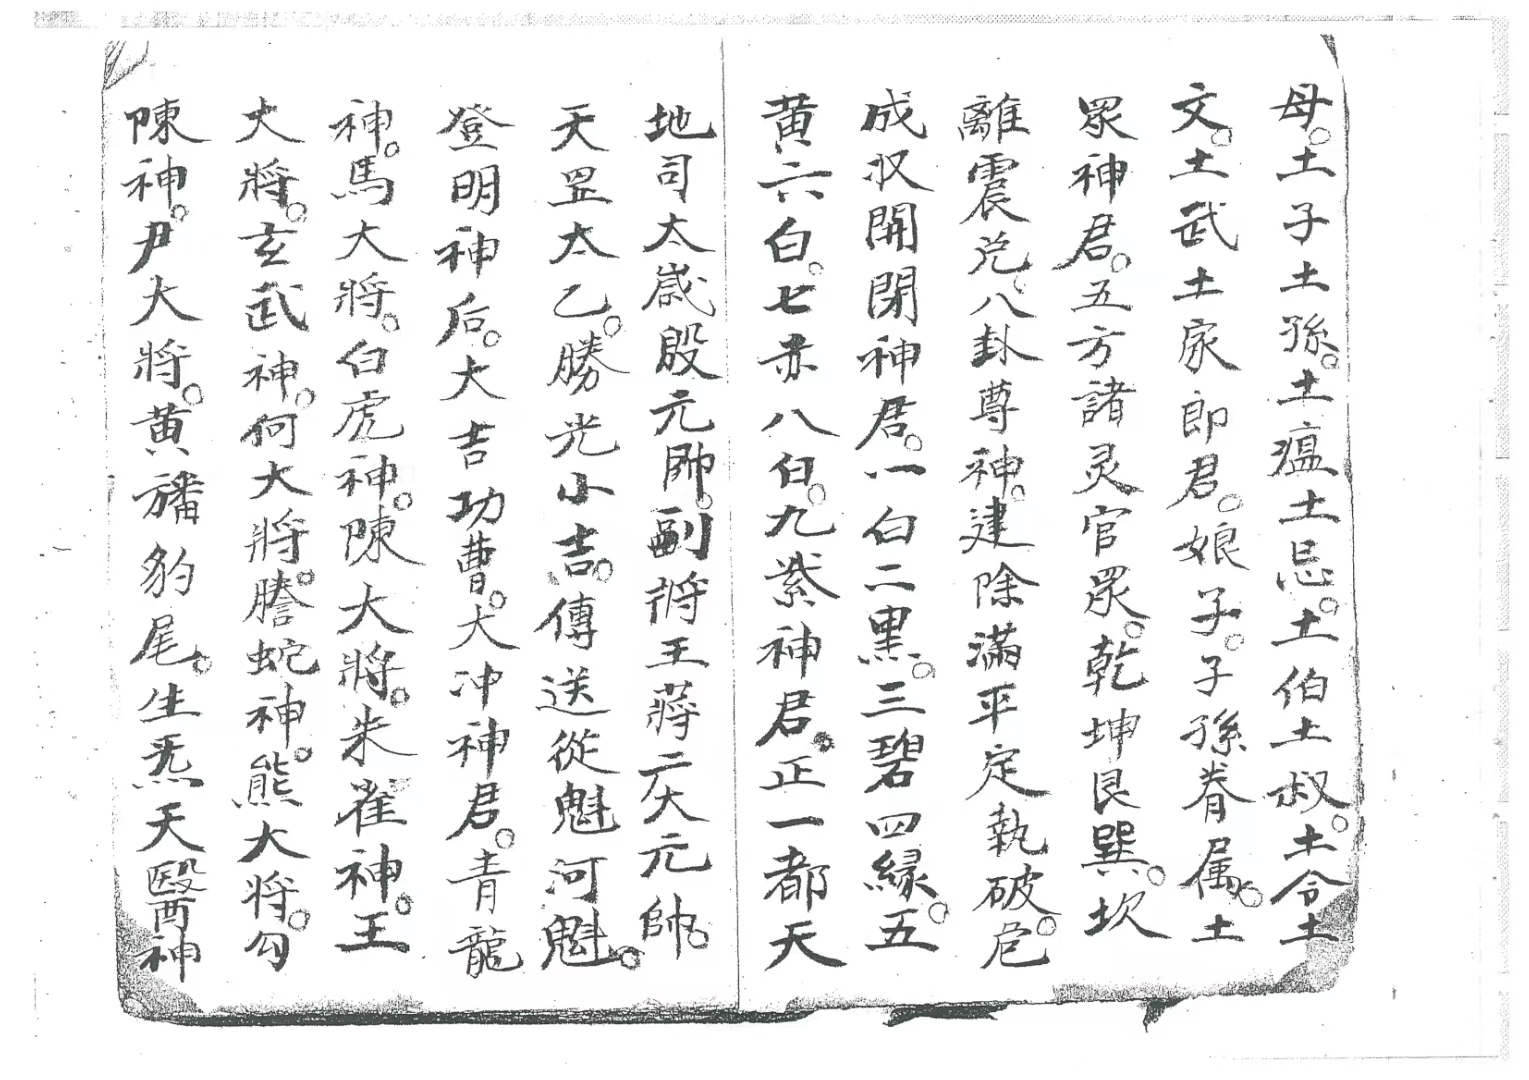 母。土子土孫。土瘟土忌。土伯土叔。土令土
文。土武土家郎君。娘子。子孫眷属。土
眾神君。五方諸灵官眾。乾坤艮巽。坎
離震兌。八卦尊神。建除滿平定執破。危
成収開閉神君。一白二黑。三碧四緑。五
黄六白。七赤八白。九紫神君。正一都天
地司太歲殷元帥。副将王蔣二大元帥。
天罡太乙。勝光小吉。傳送從魁河魁。
登明神后。大吉功曹。大冲神君。青龍
神。馬大將。白虎神。陳大將。朱雀神。王
大將。玄武神。何大將。騰蛇神。熊大将。勾
陳神。尹大將。黄旛豹尾。生炁天醫神